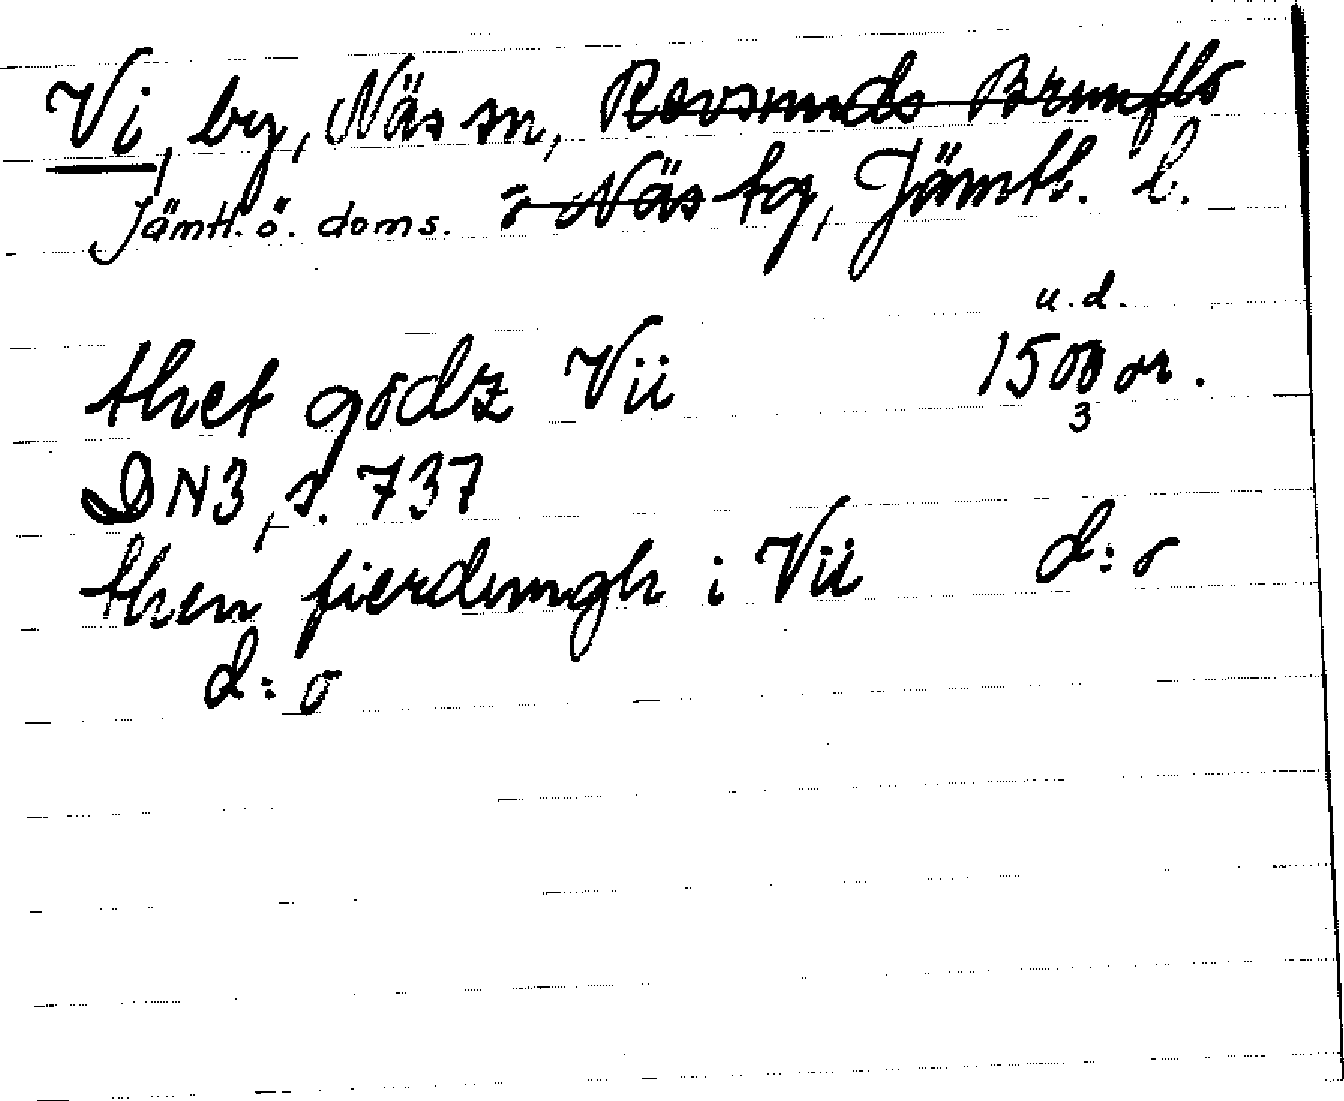 Vi, by, Näs sn, Revsunds Brunflo
Jämtl. ö. doms. o Näs tg, Jämtl. l.
u. d.
thet godz Vii 1500 or.
3
DN3, s. 737
then fierdungh i Vii d:o
d:o